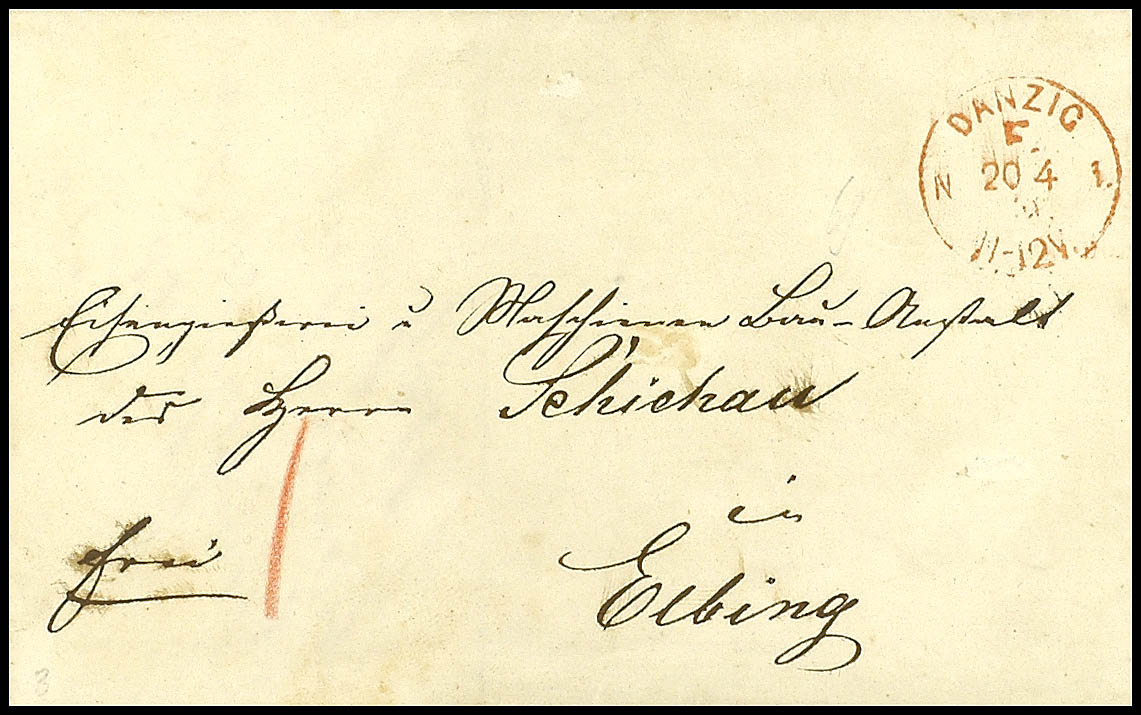 DANZIG
F.
N 20 4 1.
11-12V.
Eisengießerei u Maschienen Bau-Anstalt
des Herrn Schichau
in
frei
Elbing